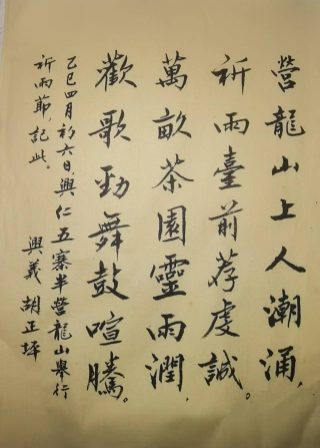 營龍山上人潮涌，
祈雨臺前荐虔誠。
萬畝茶園靈雨潤，
歡歌勁舞鼓喧騰。
乙巳四月初六日，興仁五寨半營龍山舉行
祈雨節，記此。
興義胡正坪